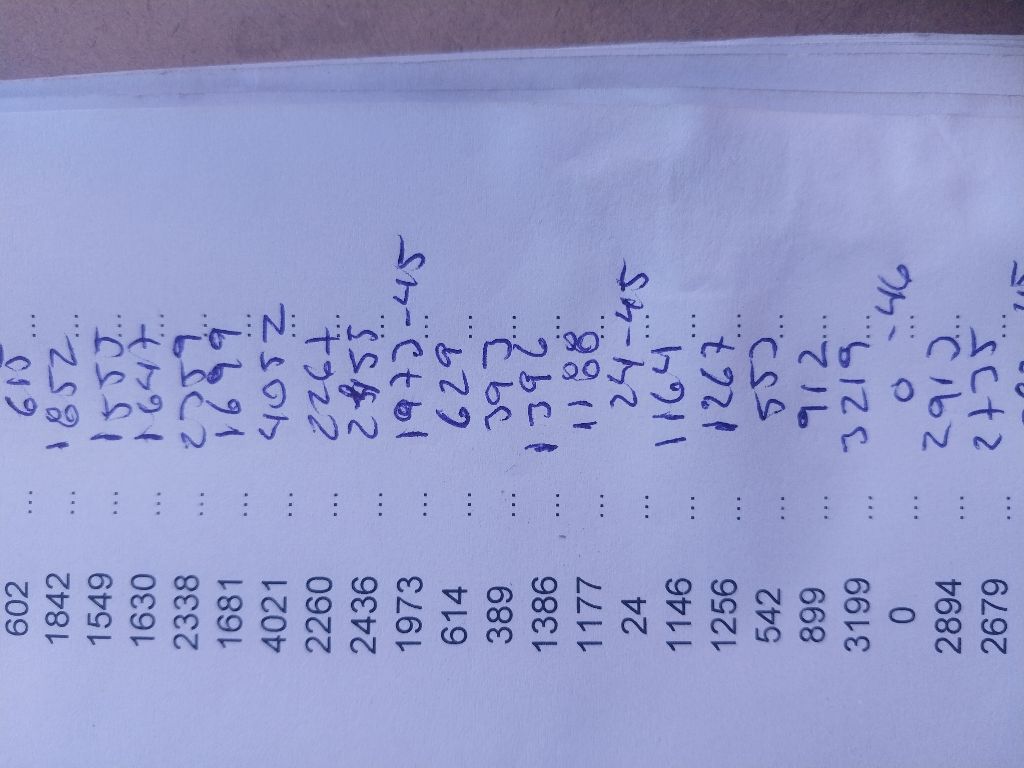 602 ... 615 ...
1842 ... 1852 ...
1549 ... 1553 ...
1630 ... 1647 ...
2338 ... 2359 ...
1681 ... 1699 ...
4021 ... 4052 ...
2260 ... 2267 ...
2436 ... 2455 ...
1973 ... 1973-45 ...
614 ... 629 ...
389 ... 393 ...
1386 ... 1396 ...
1177 ... 1188 ...
24 ... 24-45 ...
1146 ... 1164 ...
1256 ... 1267 ...
542 ... 553 ...
899 ... 912 ...
3199 ... 3219 ...
0 ... 0 -46 ...
2894 ... 2913 ...
2679 ... 2735 ...